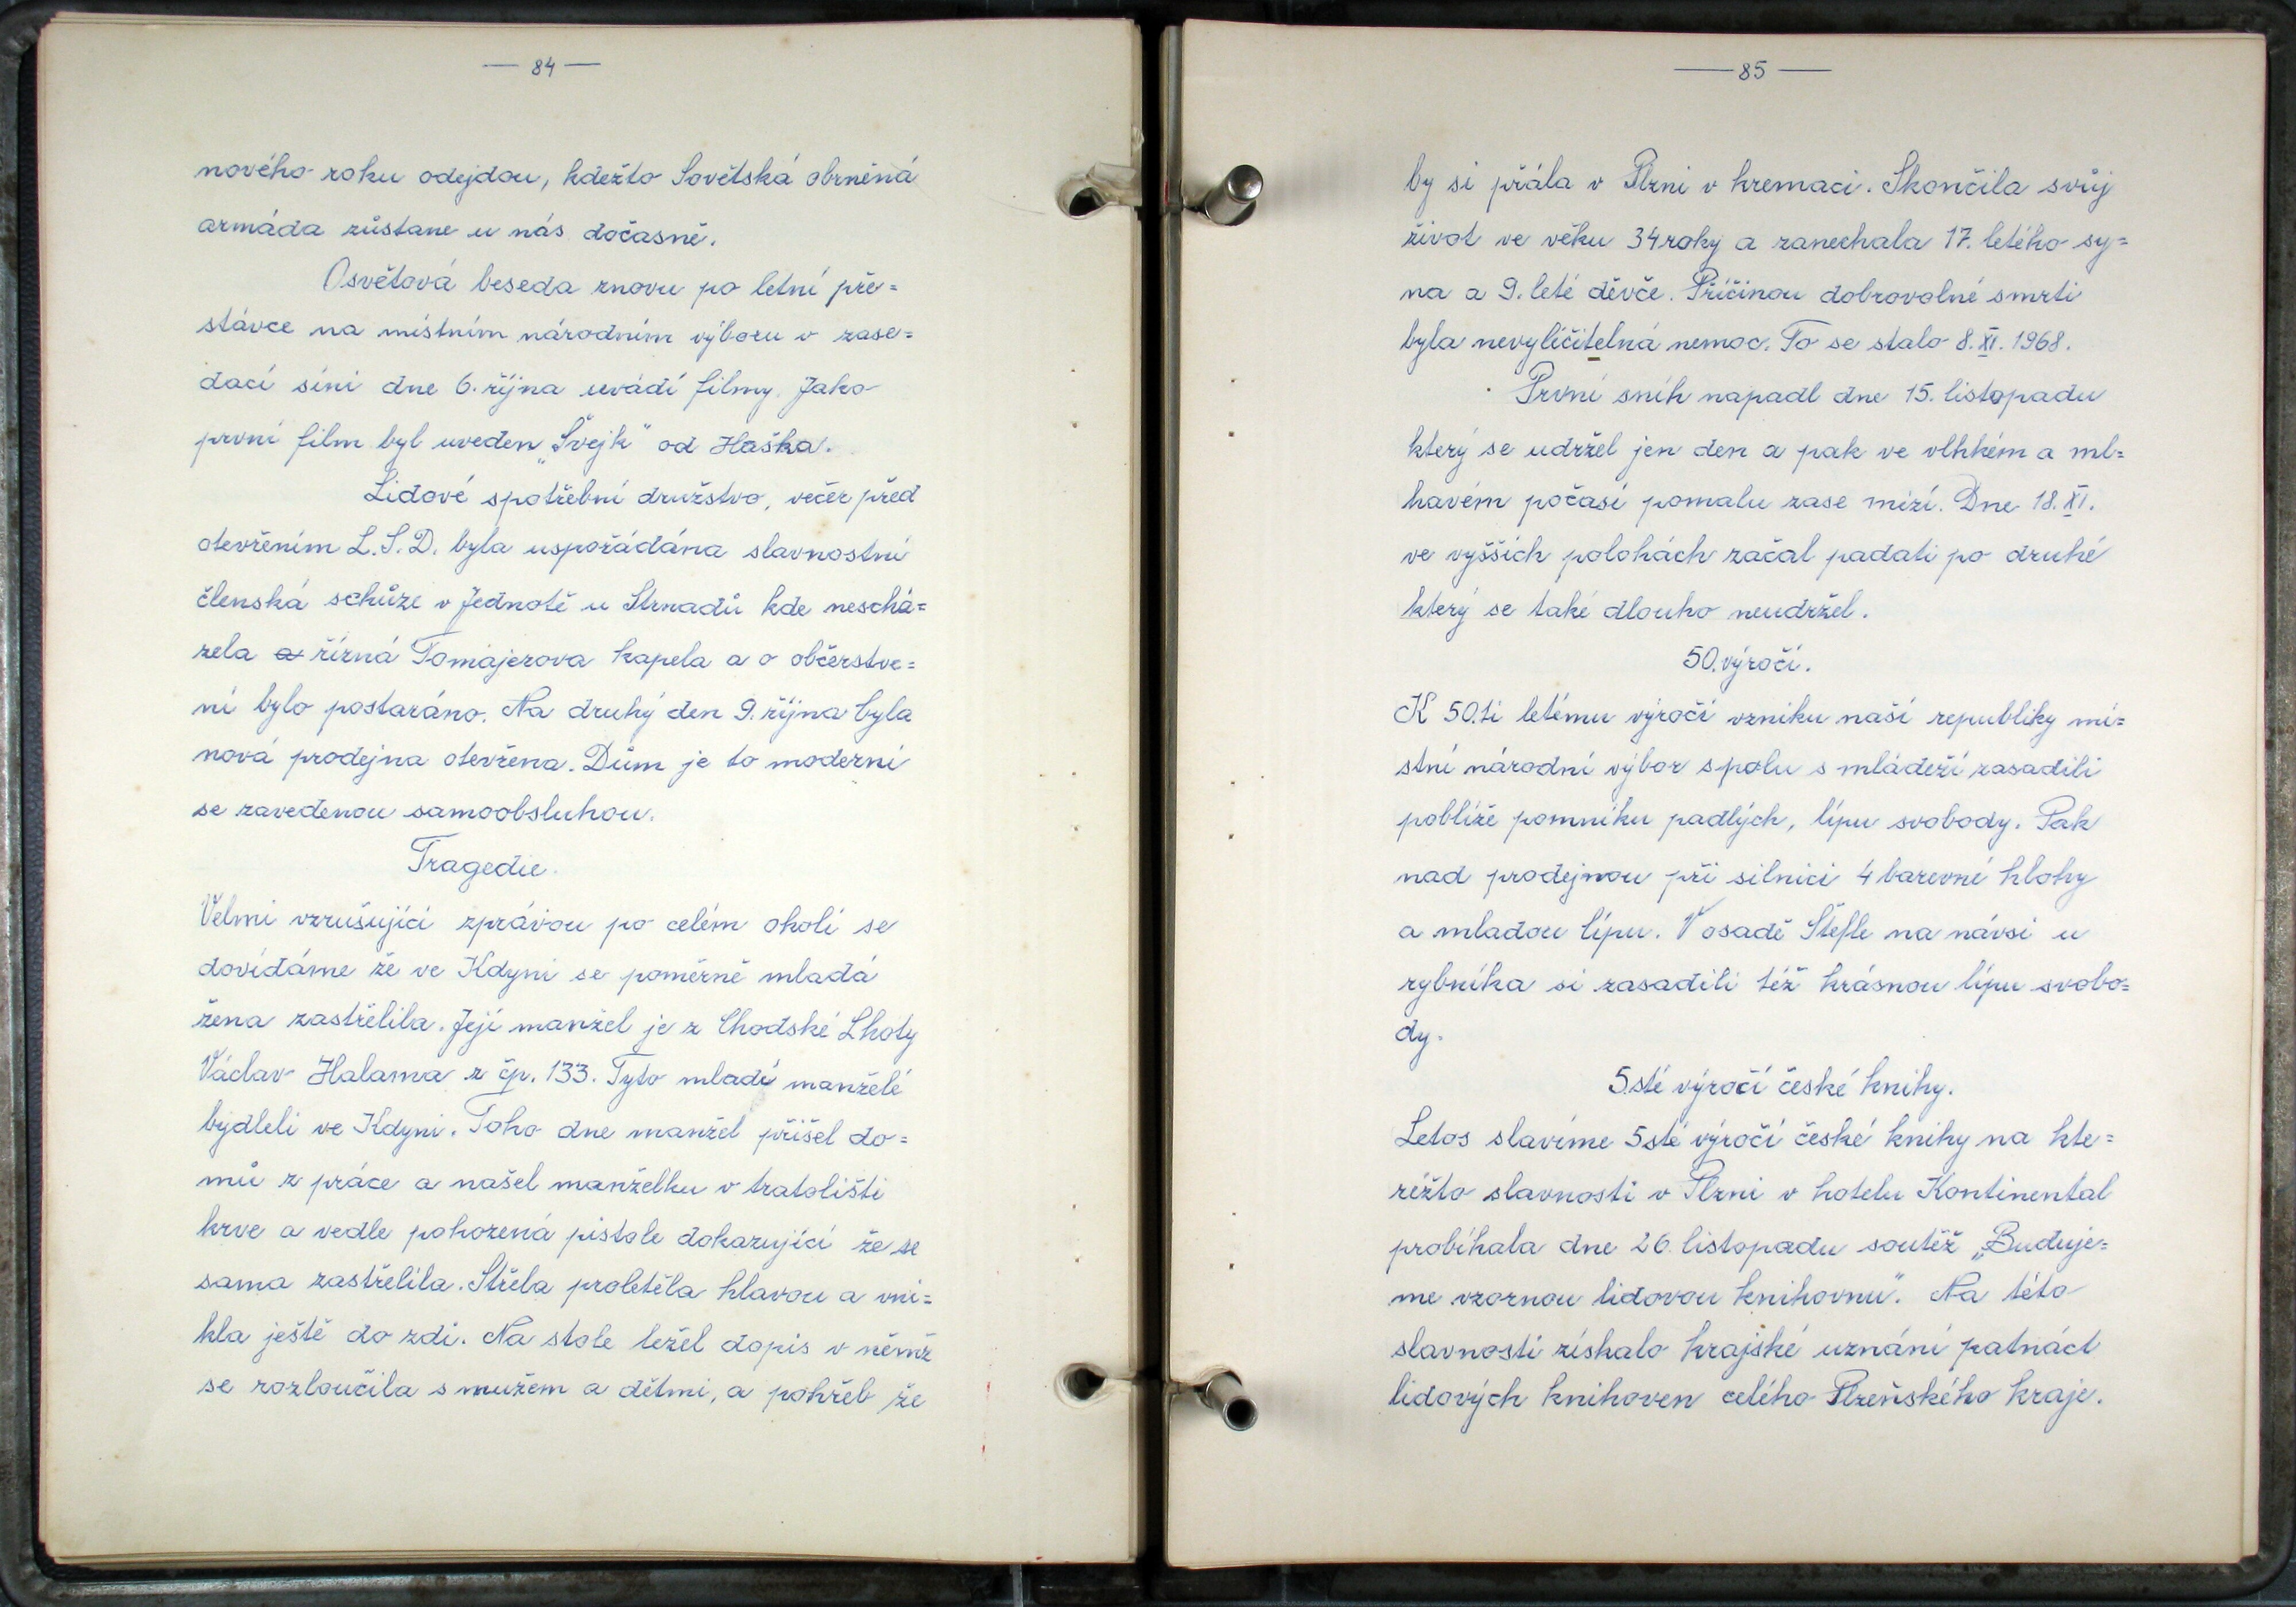 — 84 —
nového roku odejdou, kdežto Sovětská obrněná
armáda zůstane u nás dočasně.
Osvětová beseda znovu po letní pře=
stávce na místním národním výboru v zase=
dací síni dne 6. října uvádí filmy. Jako
první film byl uveden „Švejk" od Haška.
Lidové spotřební družstvo, večer před
otevřením L.S.D. byla uspořádána slavnostní
členská schůze v Jednotě u Strnadů kde neschá=
zela a řízná Tomajerova kapela a o občerstve=
ní bylo postaráno. Na druhý den 9. října byla
nová prodejna otevřena. Dům je to moderní
se zavedenou samoobsluhou.
Tragedie.
Velmi vzrušující zprávou po celém okolí se
dovídáme že ve Kdyni se poměrně mladá
žena zastřelila. Její manžel je z Chodské Lhoty
Václav Halama z čp. 133. Tyto mladí manželé
bydleli ve Kdyni. Toho dne manžel přišel do=
mů z práce a našel manželku v tratolišti
krve a vedle pohozená pistole dokazující že se
sama zastřelila. Střela proletěla hlavou a vni=
kla ještě do zdi. Na stole ležel dopis v němž
se rozloučila s mužem a dětmi, a pohřeb že
— 85 —
by si přála v Plzni v kremaci. Skončila svůj
život ve věku 34 roky a zanechala 17. letého sy=
na a 9. leté děvče. Příčinou dobrovolné smrti
byla nevyléčitelná nemoc. To se stalo 8. XI. 1968.
První sníh napadl dne 15. listopadu
který se udržel jen den a pak ve vlhkém a ml=
havém počasí pomalu zase mizí. Dne 18. XI.
ve vyšších polohách začal padati po druhé
který se také dlouho neudržel.
50. výročí.
K 50.ti letému výročí vzniku naší republiky mí=
stní národní výbor spolu s mládeží zasadili
poblíže pomníku padlých, lípu svobody. Pak
nad prodejnou při silnici 4 barevné hlohy
a mladou lípu. V osadě Štefle na návsi u
rybníka si zasadili též krásnou lípu svobo=
dy.
5.sté výročí české knihy.
Letos slavíme 5sté výročí české knihy na kte=
réžto slavnosti v Plzni v hotelu Kontinental
probíhala dne 26. listopadu soutěž „Buduje=
me vzornou lidovou knihovnu". Na této
slavnosti získalo krajské uznání patnáct
lidových knihoven celého Plzeňského kraje.